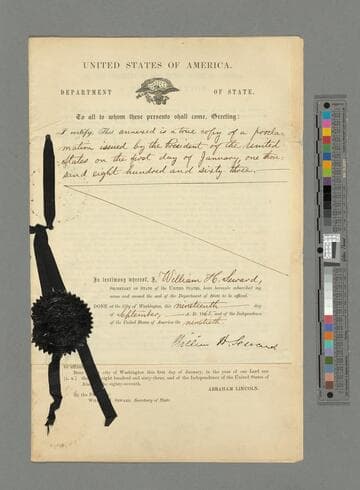 UNITED STATES OF AMERICA.
DEPARTMENT OF STATE.
To all to whom these presents shall come, Greeting:
I certify, This annexed is a true copy of a procla-
mation issued by the President of the United
States on the first day of January, one thou-
sand eight hundred and sixty three.
In testimony whereof, I, William H. Seward,
SECRETARY OF STATE of the UNITED STATES, have hereunto subscribed my
name and caused the seal of the Department of State to be affixed.
DONE at the City of Washington, this nineteenth day
of September, A. D. 186 , and of the Independence
of the United States of America the ninetieth
William H Seward
city of Washington this first day of January, in the year of our Lord one
eight hundred and sixty-three, and of the Independence of the United States of
eighty-seventh.
ABRAHAM LINCOLN.
By the
SEWARD, Secretary of State.